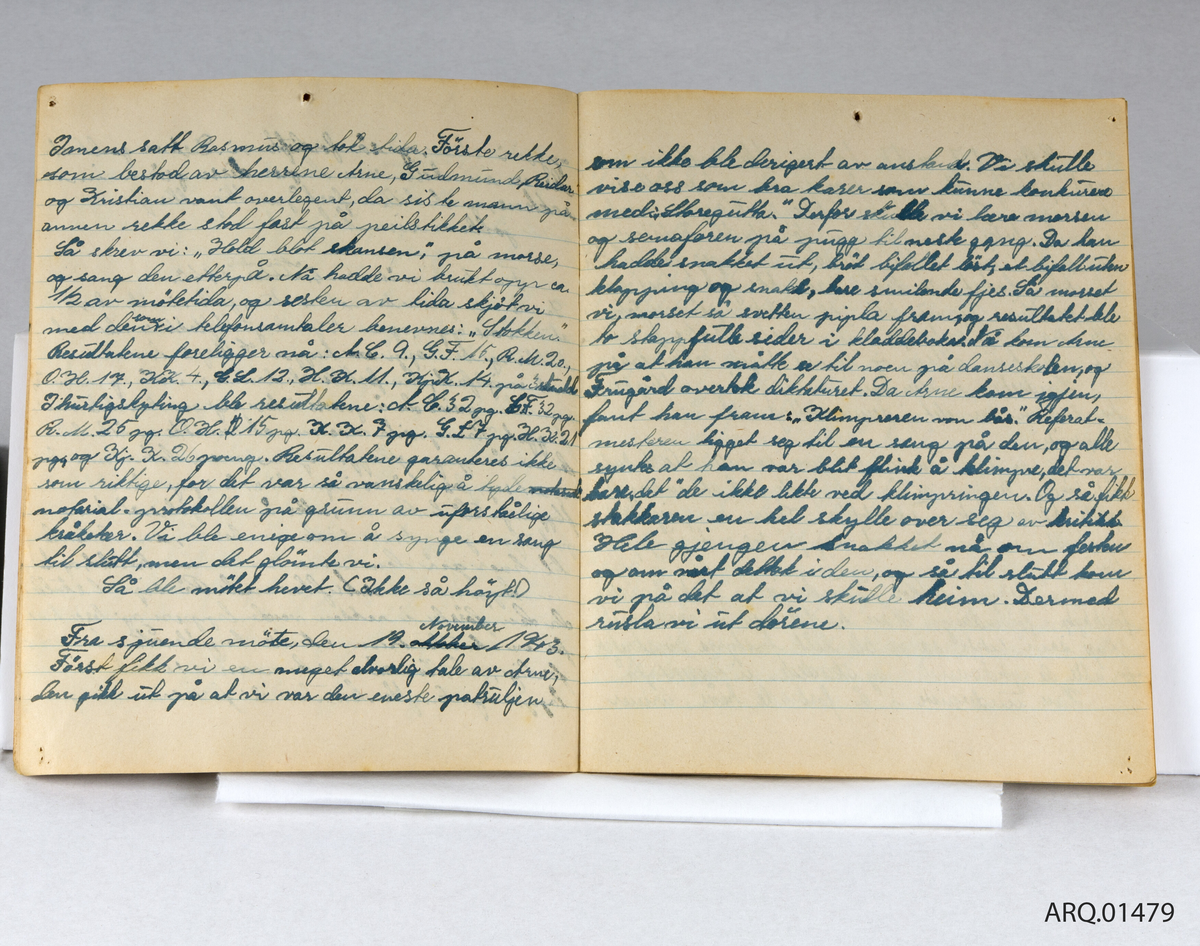 Imens satt Rasmus og tok tida. Förste rekke,
som bestod av herrene Arne, Gudmund, Reidar
og Kristian vant overlegent, da siste mann på
annen rekke stod fast på peilstikket.
Så skrev vi: „Hold blot skansen," på morse,
og sang den etterpå. Nå hadde vi brukt opp ca
1/2 av mötetida, og resten av tida skjöt vi
med den vi i telefonsamtaler benevnes: „Stokken"
Resultatene foreligger nå: A.C. 9., G.F. 15., R.M. 20.,
O.H. 17., K.K. 4., G.L. 12., H.K. 11., Kj.K. 14. på
I hurtigskyting ble resultatene: A.C. 32 pg. G.F. 32 pg.
R.M. 25 pg. O.H. 15 pg. K.K. 7 pg. G.L 7 pg. H.K. 21
pg, og Kj. K. 26 poeng. Resultatene garanteres ikke
som riktige, for det var så vanskelig å tyde
notarial-protokollen på grunn av uforståelige
kråketer. Vi ble enige om å synge en sang
til slutt, men det glömte vi.
Så ble mötet hevet. (Ikke så höyt!)
November
Fra sjuende möte, den 19. 1943.
Först fikk vi en meget alvorlig tale av Arne,
den gikk ut på at vi var den eneste patruljen
som ikke ble derigert av
Vi skulle
vise oss som bra karer som kunne konkurere
med „Storegutta." Derfor skulle vi lære morsen
og semaforen på pugg til neste gang. Da han
hadde snakket ut, bröt bifallet löst, et bifall uten
klapping og snakk, bare smilende fjes. Så morset
vi, morset så svetten pipla fram, og resultatet ble
to stapp fulle sider i kladdeboka. Så kom Arne
på at han måtte til noen på danseskolen, og
Frugård overtok diktaturet. Da Arne kom igjen,
fant han fram: „Klimpreren von lås". Referat-
mesteren ligget seg til en sang på den, og alle
synks at han var blit flink å klimpre, det var
bare „det" de ikke likte ved klimpringen. Og så fikk
stakkaren en hel skylle over seg av kritikk
Hele gjengen snakket nå om festen
og om vårt deltek i den, og så til slutt kom
vi på det at vi skulle heim. Dermed
rusla vi ut dörene.
ARQ.01479